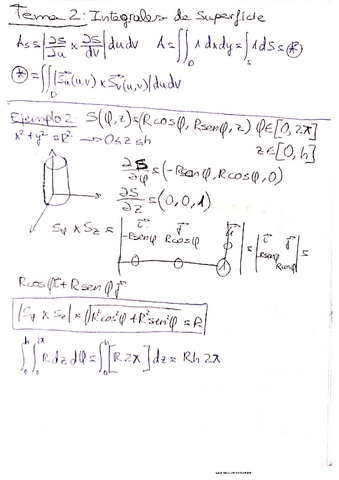 Tema 2: Integrales de Superficie
As = |∂S/∂u × ∂S/∂v| du dv   A = ∬_D 1 dxdy = ∫_S 1 dS = (*)
(*) = ∬_D |S⃗u(u,v) × S⃗v(u,v)| du dv
Ejemplo 2: S(φ,z) = (Rcosφ, Rsenφ, z)  φ∈[0,2π]
x²+y² = R² → 0≤z≤h   z∈[0,h]
∂S/∂φ = (-Rsenφ, Rcosφ, 0)
∂S/∂z = (0,0,1)
Sφ × Sz = | i⃗ j⃗ k⃗ ; -Rsenφ Rcosφ 0 ; 0 0 1 | = | i⃗ j⃗ ; -Rsenφ Rcosφ | =
Rcosφ i⃗ + Rsenφ j⃗
|Sφ × Sz| = √(R²cos²φ + R²sen²φ) = R
∫₀^h ∫₀^2π R dz dφ = ∫₀^h [R 2π] dz = Rh2π